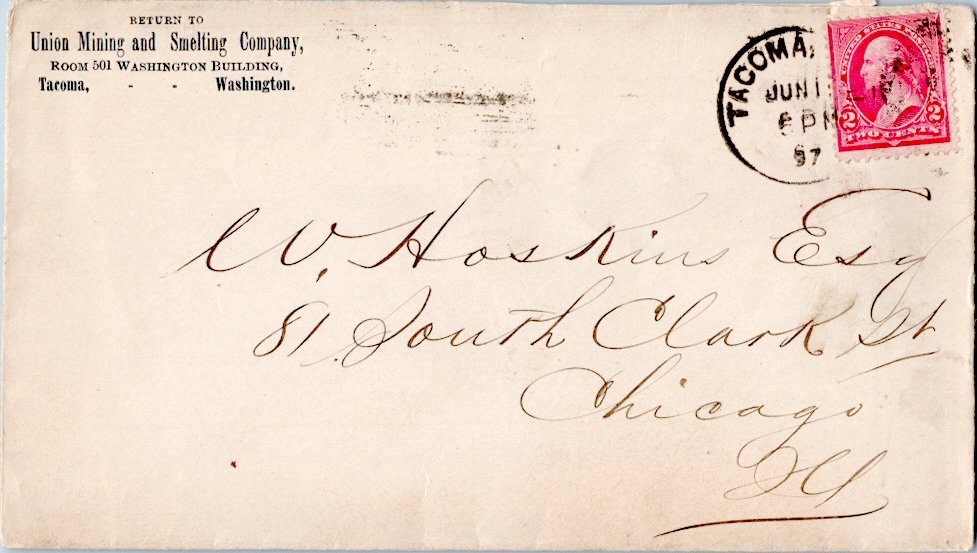 RETURN TO
Union Mining and Smelting Company,
ROOM 501 WASHINGTON BUILDING,
Tacoma, - - Washington.
TACOMA,
JUN 1
6 PM
97
UNITED STATES
2 2
TWO CENTS
W. Hoskins Esq
81 South Clark St
Chicago
Ill